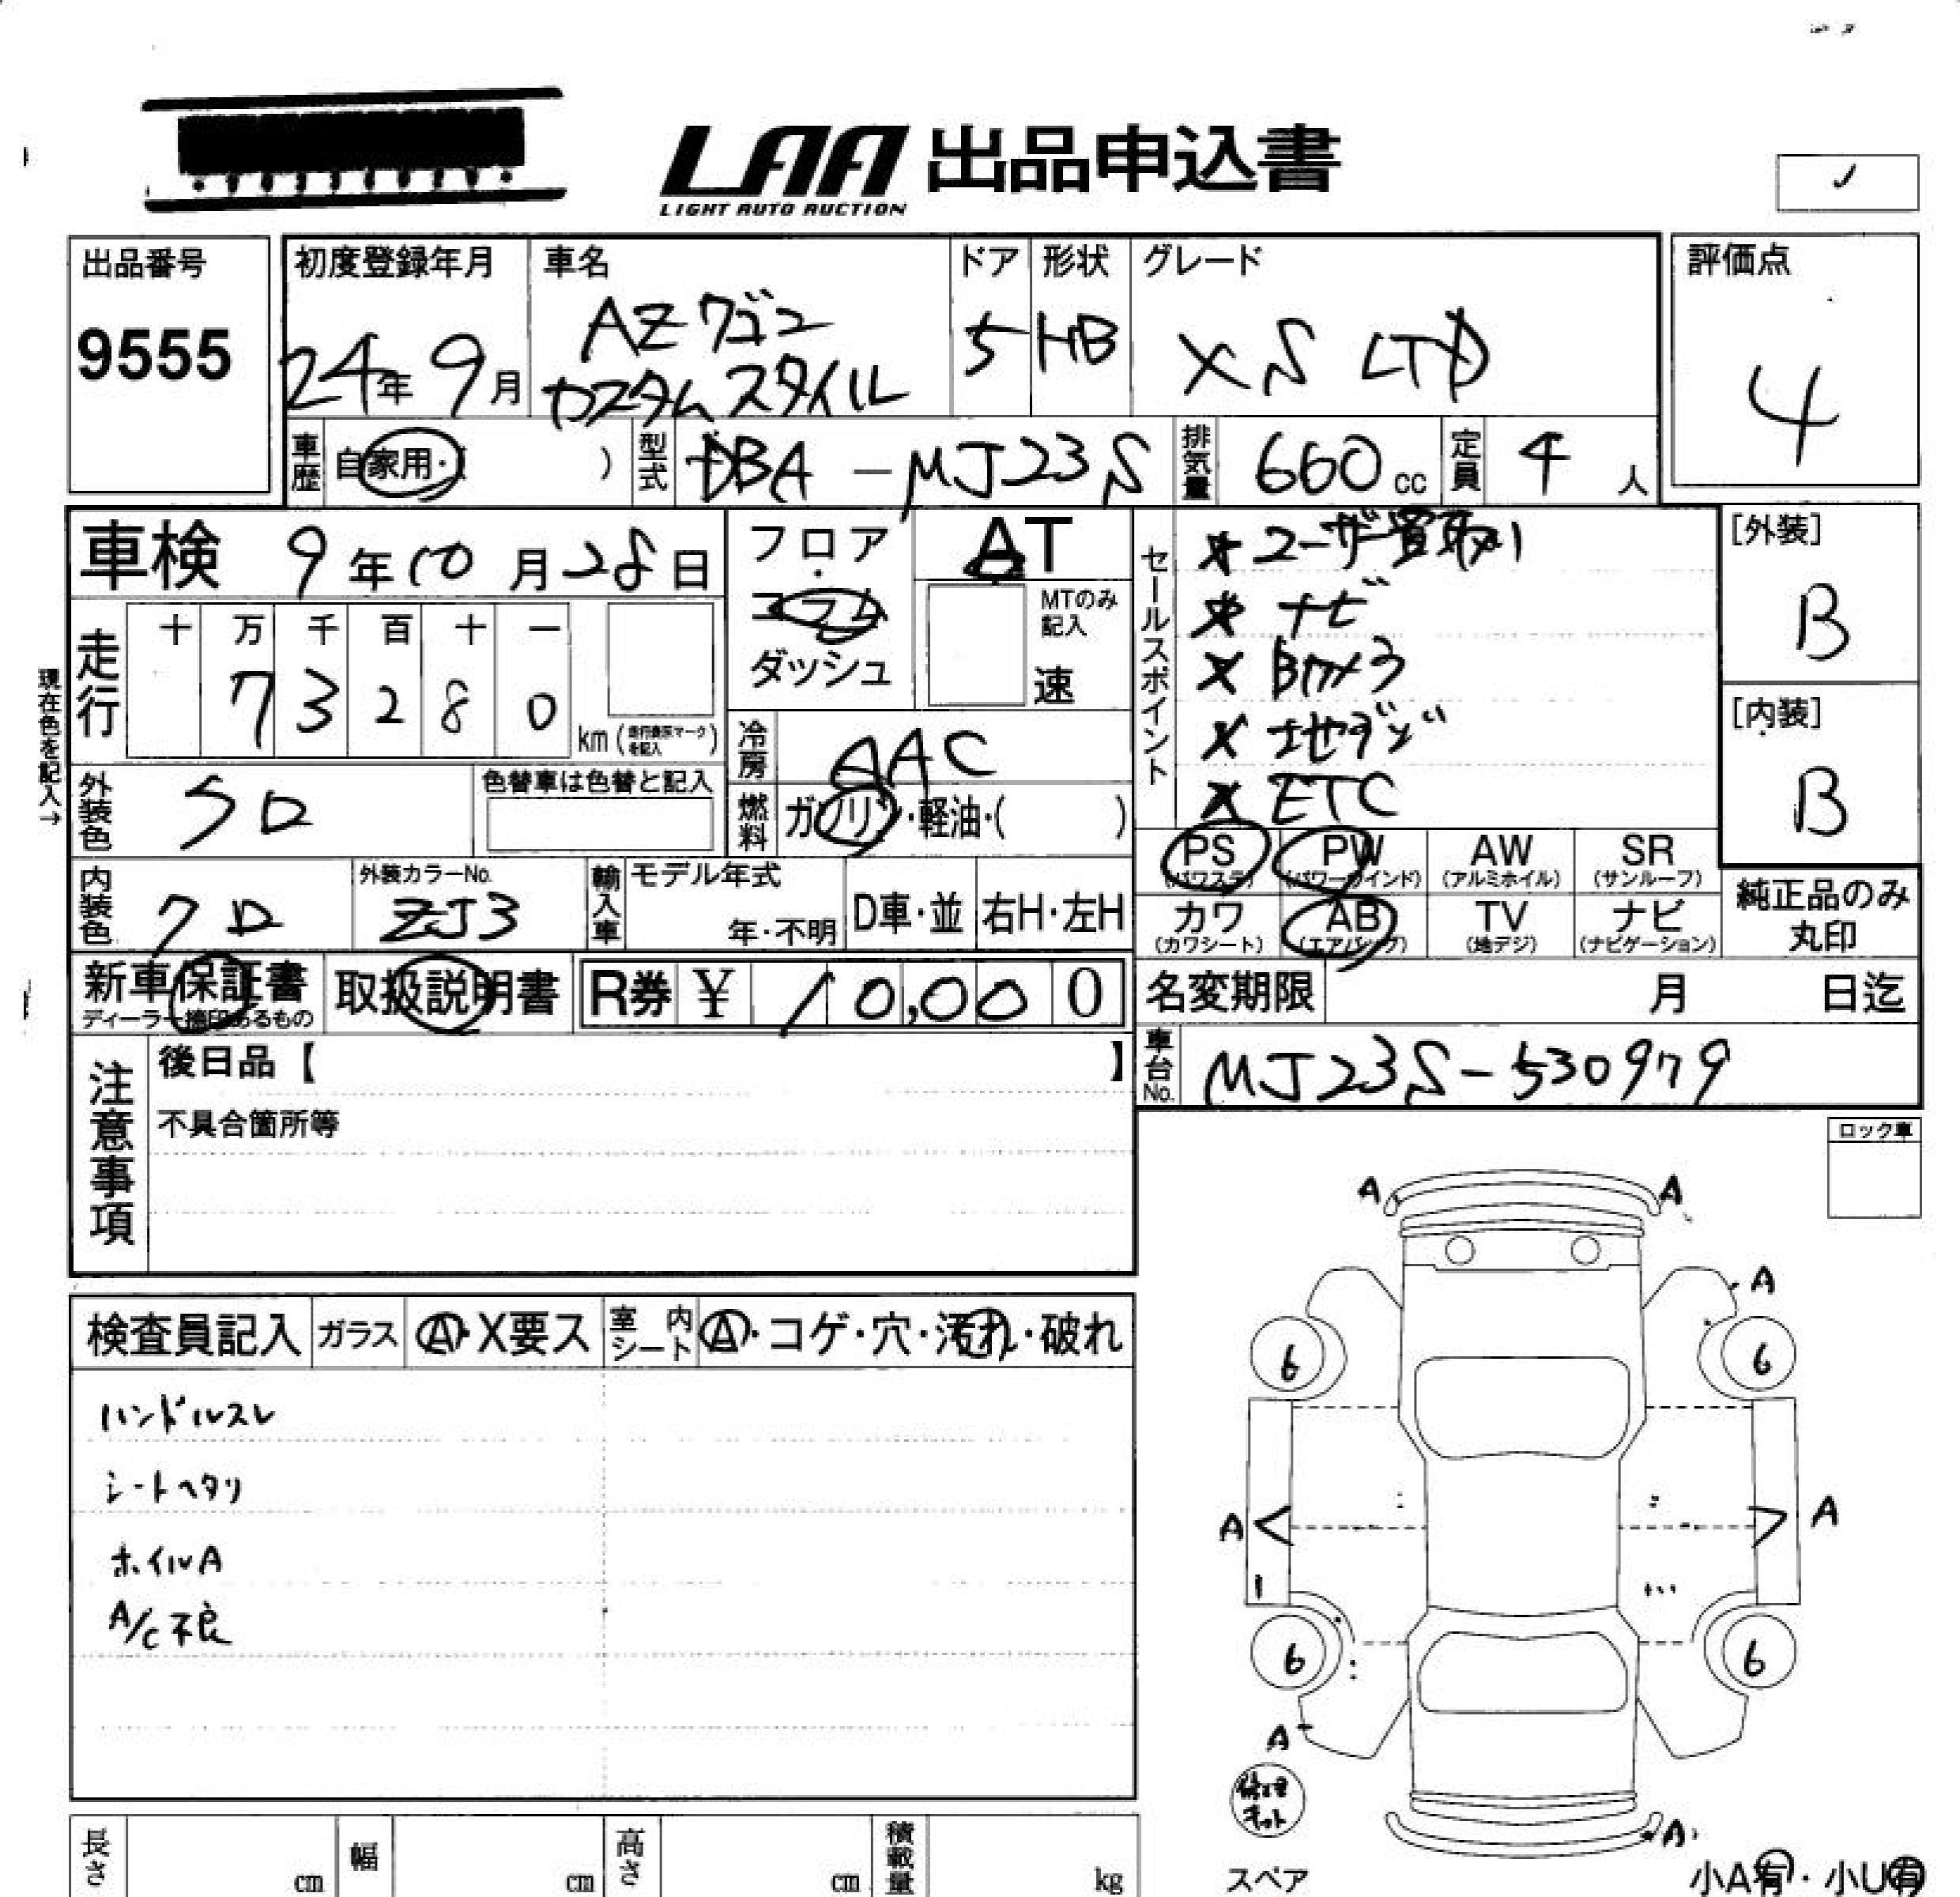 LAA 出品申込書
LIGHT AUTO AUCTION
出品番号
9555
初度登録年月
24年 9月
車名
AZワゴン
カスタムスタイル
ドア
5
形状
HB
グレード
XS LTD
評価点
4
車歴
自家用・( )
型式
DBA-MJ23S
排気量
660 cc
定員
4 人
車検 9年10月28日
フロア
・
コラム
ダッシュ
AT
MTのみ
記入
速
セールスポイント
ユーザー買取り
ナビ
Bカメラ
地デジ
ETC
[外装]
B
[内装]
B
現在色を記入→
走行
十 万 千 百 十 一
7 3 2 8 0
km (走行表示マークを記入)
冷房
AAC
外装色
色替車は色替と記入
燃料
ガソリン・軽油・( )
PS
(パワステ)
PW
(パワーウインド)
AW
(アルミホイル)
SR
(サンルーフ)
内装色
外装カラーNo.
ZJ3
輸入車
モデル年式
年・不明
D車・並
右H・左H
カワ
(カワシート)
AB
(エアバッグ)
TV
(地デジ)
ナビ
(ナビゲーション)
純正品のみ
丸印
新車保証書
ディーラー捺印あるもの
取扱説明書
R券 ¥ 10,000
名変期限 月 日迄
車台No.
MJ23S-530979
注意事項
後日品【 】
不具合箇所等
ロック車
検査員記入
ガラス
A・X要ス
室内シート
A・コゲ・穴・汚れ・破れ
ハンドルスレ
シートヘタリ
ホイルA
A/C不良
A A
A
6 6
A A
6 6
A
A
修理キット
スペア
小A有・小U有
長さ cm
幅 cm
高さ cm
積載量 kg